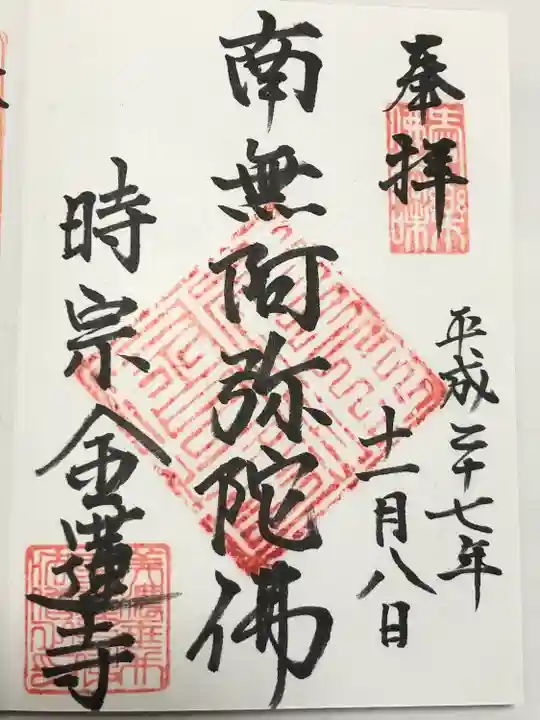 奉拝
平成二十七年
十一月八日
南無阿弥陀佛
時宗金蓮寺